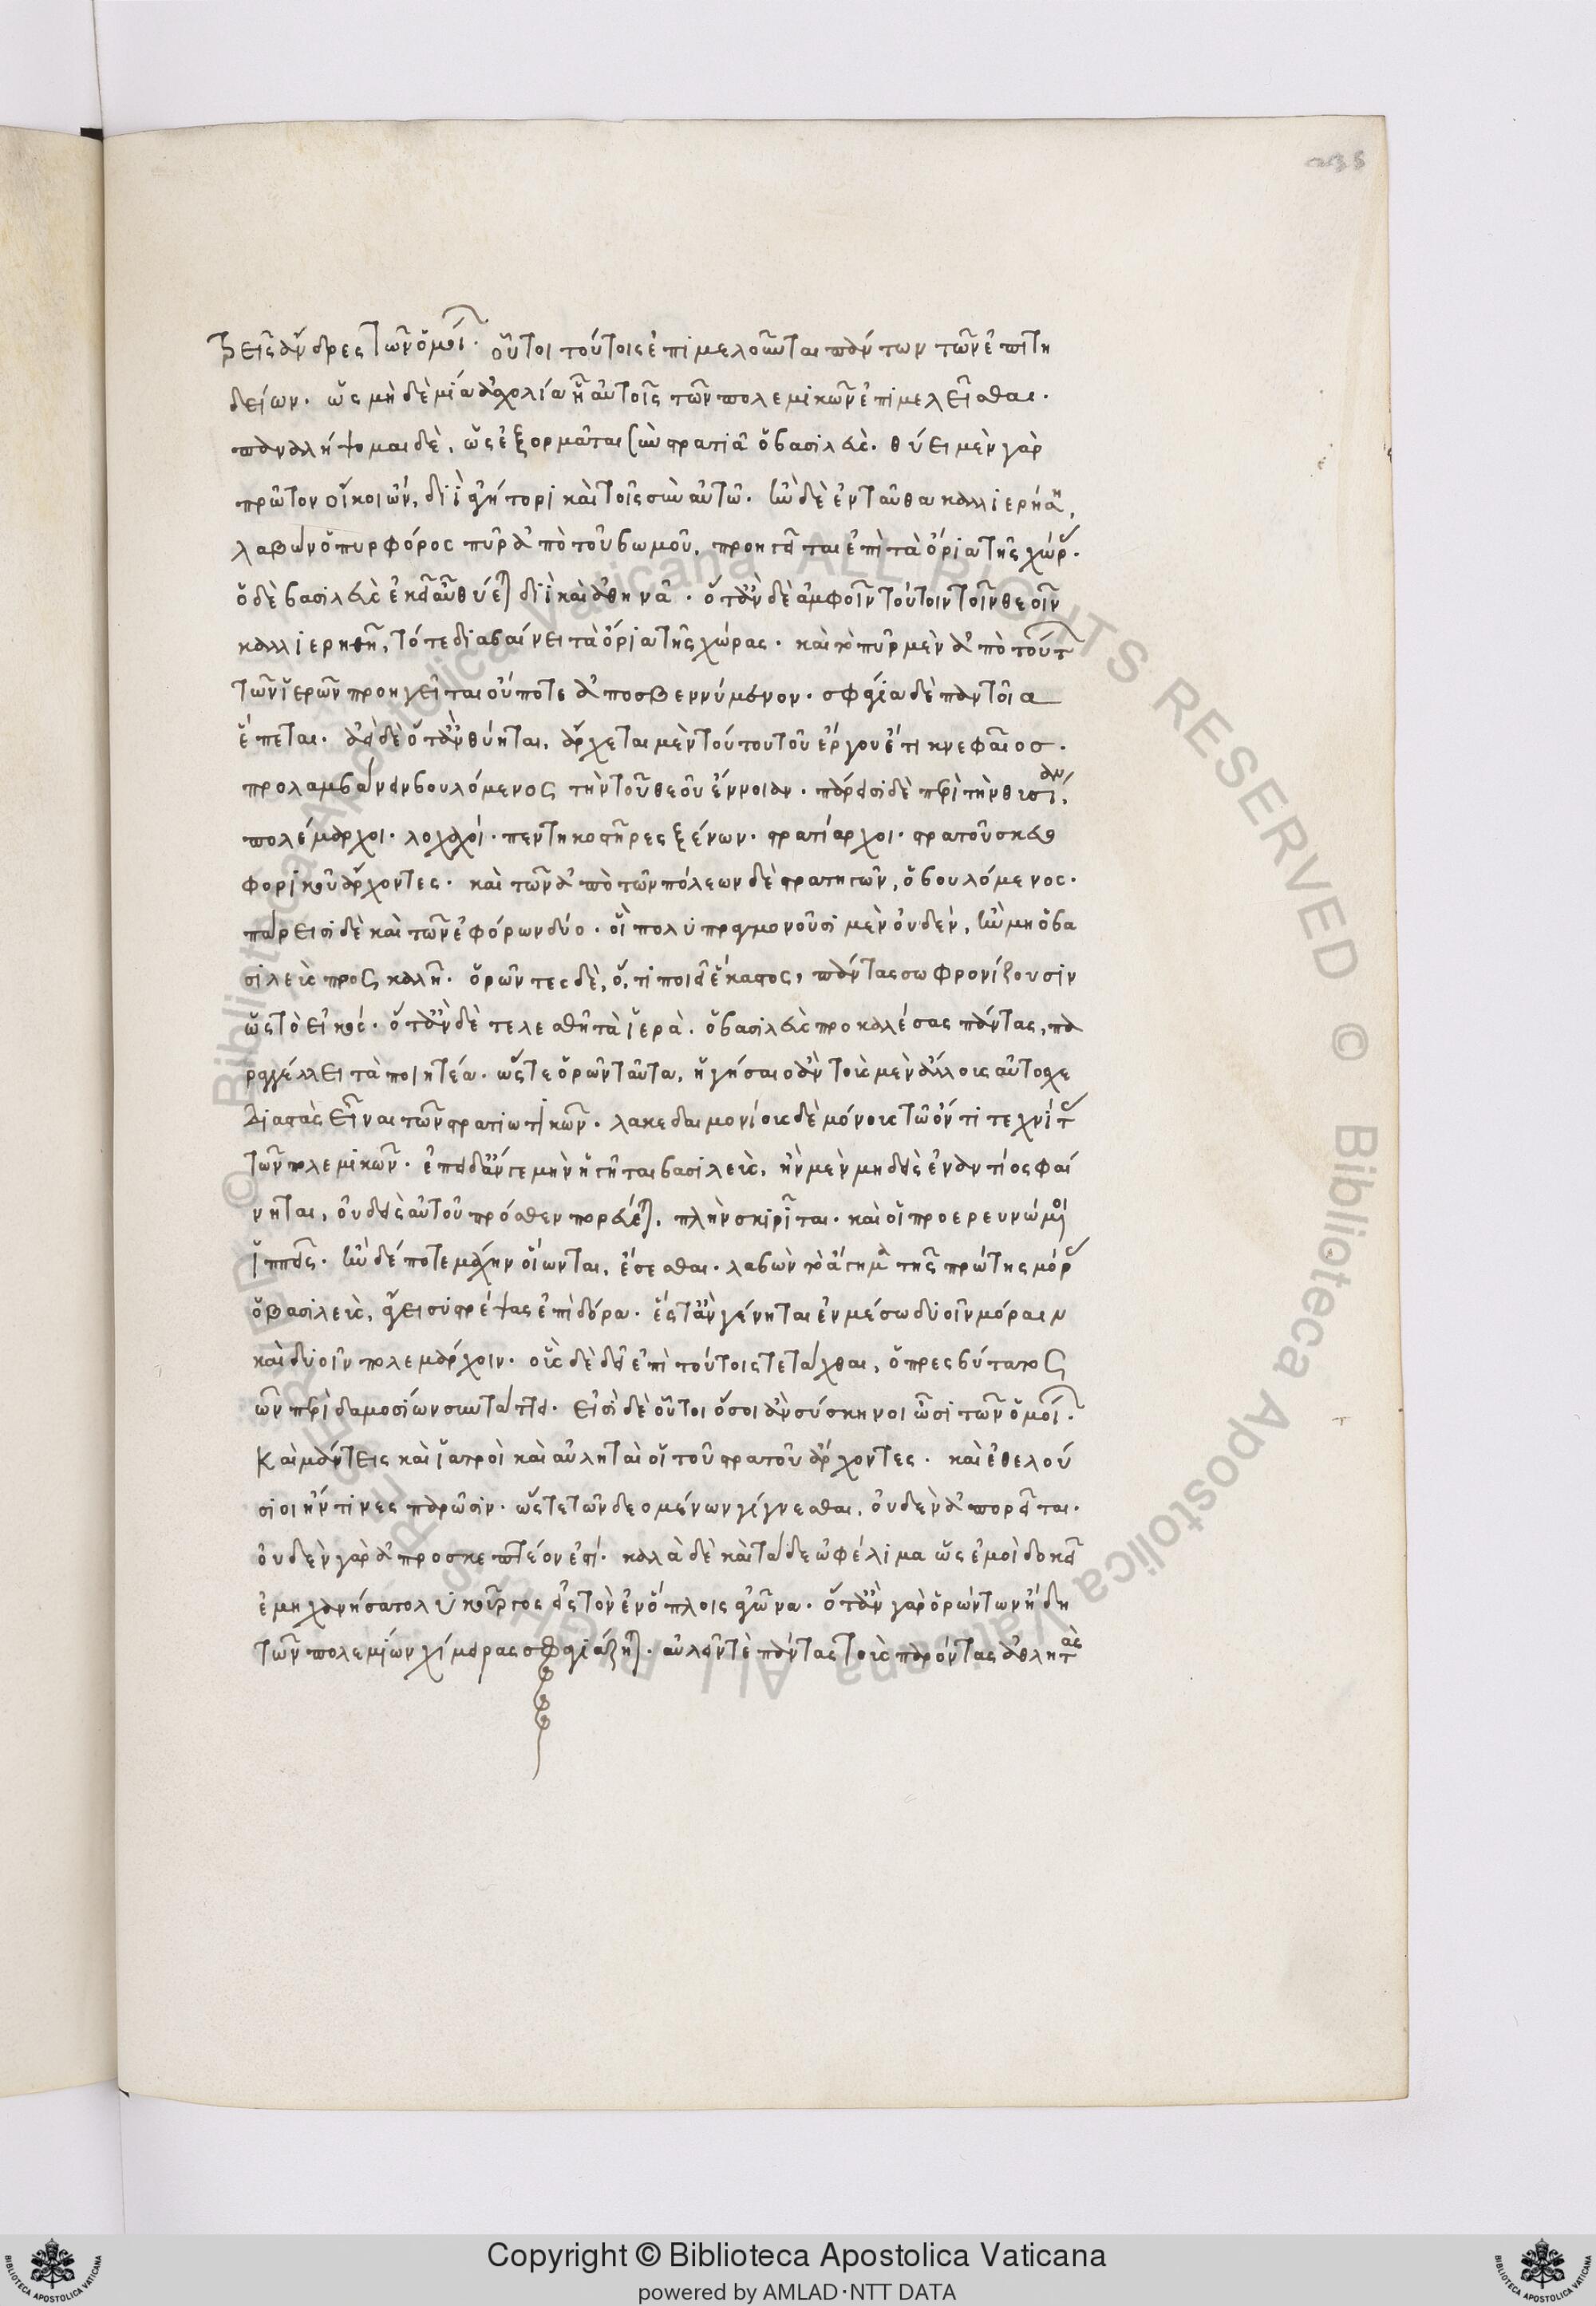 τρεῖς ἄνδρες τῶν ὁμοί. οὗτοι τούτοις ἐπιμελοῦνται πάντων τῶν ἐπιτη
δείων. ὡς μὴδὲμία ἀσχολία ᾖ αὐτοῖς τῶν πολεμικῶν ἐπιμελεῖσθαι.
παναλήψομαι δὲ, ὡς ἐξορμᾶται σὺν στρατιᾷ ὁ βασιλεὺς. θύει μὲν γὰρ
πρῶτον οἴκοι ὢν, διὶ ἀγήτορι καὶ τοῖς σὺν αὐτῶ. ἢν δὲ ἐνταῦθα καλλιερήση,
λαβὼν ὁ πυρφόρος πῦρ ἀπὸ τοῦ βωμοῦ, προηγεῖται ἐπὶ τὰ ὅρια τῆς χώρ.
ὁ δὲ βασιλεὺς ἐκεῖ αὖ θύεται διὶ καὶ ἀθηνᾶ. ὅταν δὲ ἀμφοῖν τούτοιν τοῖν θεοῖν
καλλιερηθῆ, τότε διαβαίνει τὰ ὅρια τῆς χώρας. καὶ τὸ πῦρ μὲν ἀπὸ τούτ
τῶν ἱερῶν προηγεῖται οὔποτε ἀποσβεννύμενον. σφάγια δὲ παντοῖα
ἕπεται. ἀεὶ δὲ ὅταν θύηται, ἄρχεται μὲν τούτου τοῦ ἔργου ἔτι κνεφαῖοσ.
προλαμβάνειν βουλόμενος τὴν τοῦ θεοῦ ἔννοιαν. πάρεισι δὲ περὶ τὴν θυσίαν,
πολέμαρχοι. λοχαγοί. πεντηκοστῆρες ξένων. στρατίαρχοι. στρατοῦ σκευο
φορικοῦ ἄρχοντες. καὶ τῶν ἀπὸ τῶν πόλεων δὲ στρατηγῶν, ὁ βουλόμενος.
πάρεισι δὲ καὶ τῶν ἐφόρων δύο. οἳ πολυπραγμονοῦσι μὲν οὐδὲν, ἢν μὴ ὁ βα
σιλεὺς προς καλῆ. ὁρῶντες δὲ, ὅ, τι ποιεῖ ἕκαστος, πάντας σωφρονίζουσιν
ὡς τὸ εἰκός. ὅταν δὲ τελεσθῆ τὰ ἱερὰ. ὁ βασιλεὺς προκαλέσας πάντας, πα
ραγγέλλει τὰ ποιητέα. ὥστε ὁρῶν ταῦτα, ἡγήσαιο ἂν τοὺς μὲν ἄλλους αὐτοσχε
διαστὰς εἶναι τῶν στρατιωτικῶν. λακεδαιμονίους δὲ μόνους τῶ ὄντι τεχνίτ
τῶν πολεμικῶν. ἐπειδάν γε μὴν ἡγῆται βασιλεὺς, ἢν μὲν μηδεὶς ἐναντίος φαί
νηται, οὐδεὶς αὐτοῦ πρόσθεν πορεύεται, πλὴν σκιρῖται. καὶ οἱ προερευνώμενοι
ἱππεῖς. ἢν δέ ποτε μάχην οἴωνται, ἔσεσθαι. λαβὼν τὸ ἄγημα τῆς πρώτης μόρ
ὁ βασιλεὺς, ἄγει στρέψας ἐπὶ δόρα. ἔς τ ἂν γένηται ἐν μέσω δυοῖν μόραιν
καὶ δυοῖν πολεμάρχοιν. οὓς δὲ δεῖ ἐπὶ τούτοις τετάχθαι, ὁ πρεσβύτατος
ὢν περὶ δαμοσίων συντάττει. εἰσὶ δὲ οὗτοι ὅσοι ἂν σύσκηνοι ὦσι τῶν ὁμοί.
Καὶ μάντεις καὶ ἰατροὶ καὶ αὐληταὶ οἱ τοῦ στρατοῦ ἄρχοντες. καὶ ἐθελού
σιοι ἤν τινες παρῶσιν. ὥστε τῶν δεομένων γίγνεσθαι, οὐδὲν ἀπορεῖται.
οὐδὲν γὰρ ἀπροσκεπτέον ἐστί. καλὰ δὲ καὶ τάδε ὠφέλιμα ὡς ἐμοὶ δοκεῖ
ἐμηχανήσατο λυκοῦργος εἰς τὸν ἐν ὅπλοις ἀγῶνα. ὅταν γὰρ ὁρώντων ἤδη
τῶν πολεμίων χίμαιρας σφαγιάζηται. αὐλεῖν τὲ πάντας τοὺς παρόντας ἀθλητὰς